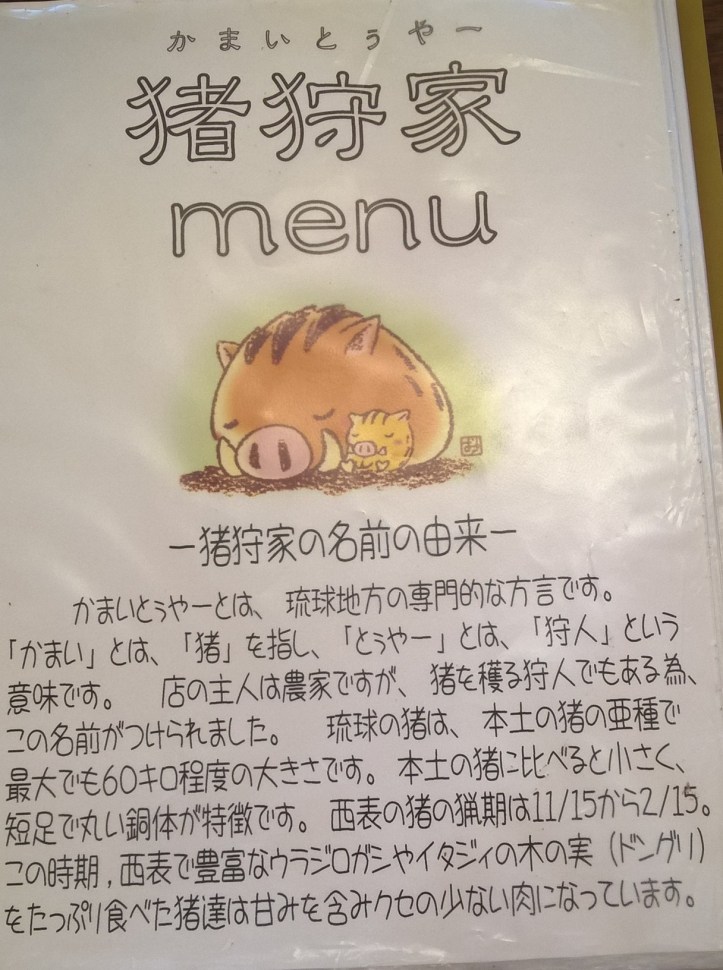 かまいとぅやー
猪狩家
menu
み
ー猪狩家の名前の由来ー
かまいとぅやーとは、琉球地方の専門的な方言です。
「かまい」とは、「猪」を指し、「とぅやー」とは、「狩人」という
意味です。 店の主人は農家ですが、猪を穫る狩人でもある為、
この名前がつけられました。 琉球の猪は、本土の猪の亜種で
最大でも60キロ程度の大きさです。本土の猪に比べると小さく、
短足で丸い銅体が特徴です。西表の猪の猟期は11/15から2/15。
この時期,西表で豊富なウラジロガシやイタジィの木の実(ドングリ)
をたっぷり食べた猪達は甘みを含みクセの少ない肉になっています。